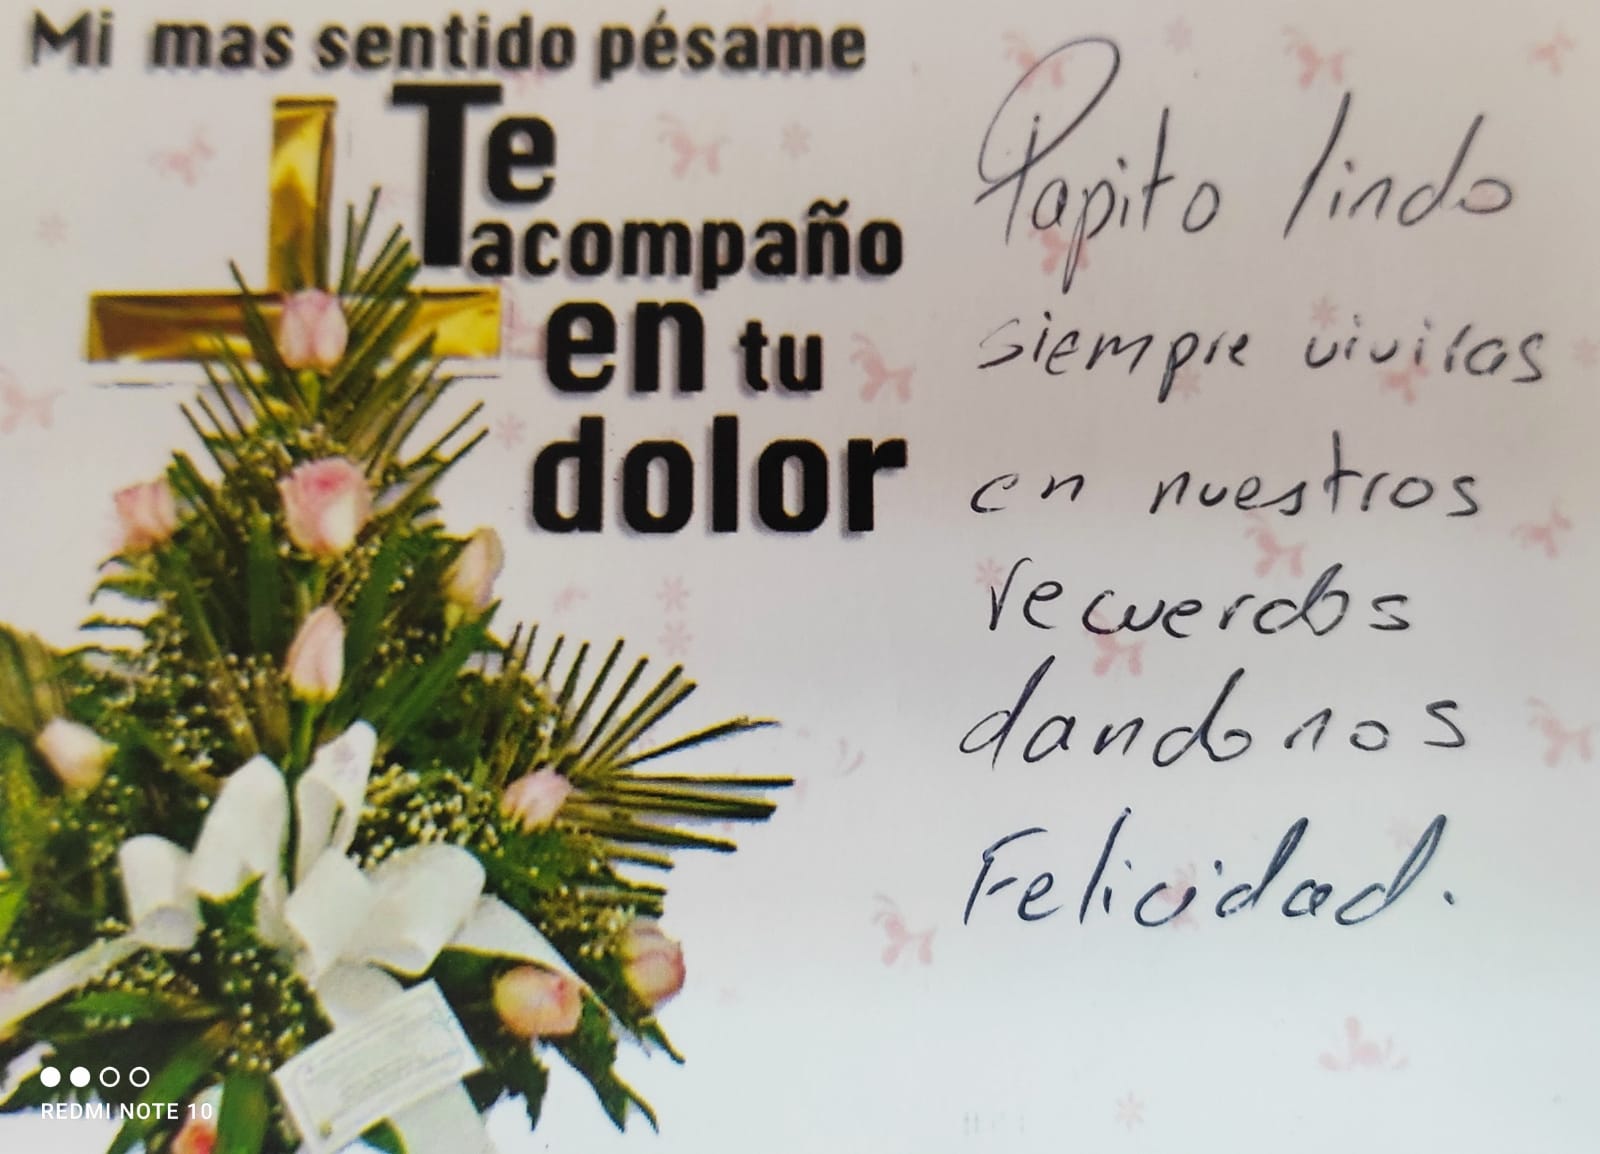 Mi mas sentido pésame
Te
acompaño
en tu
dolor
Papito lindo
siempre viviras
en nuestros
recuerdos
dandonos
Felicidad.
REDMI NOTE 10